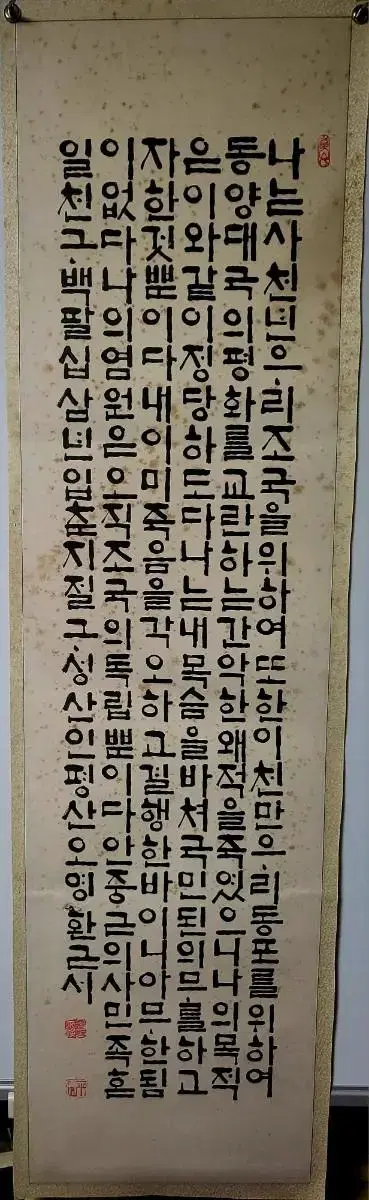 나는사천년우리조국을위하여또한이천만우리동포를위하여
동양대국의평화를교란하는간악한왜적을죽였으니나의목적
은이와같이정당하도다나는내목슴을바쳐국민된의무를하고
자한것뿐이다내이미죽음을각오하고결행한바이니아무한됨
이없다나의염원은오직조국의독립뿐이다안중근의사민족혼
일천구백팔십삼년입춘지절구성산인평산오영환근서